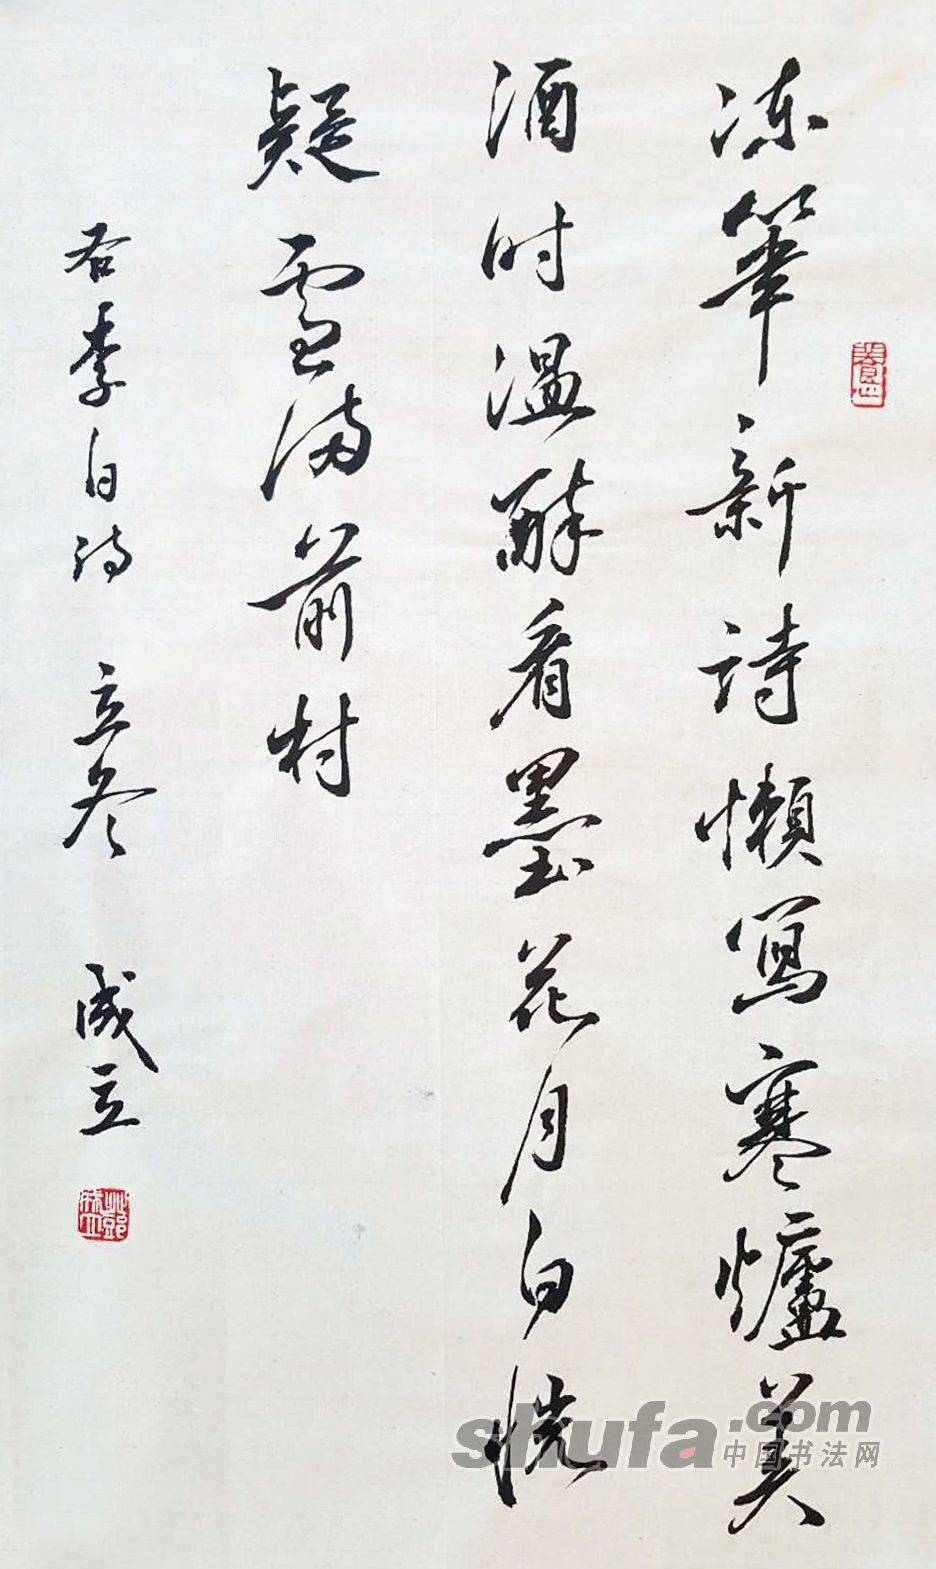 冻筆新詩懶寫寒爐美
酒时温醉看墨花月白恍
疑雪满前村
右李白诗 立冬 成立
shufa.com
中国书法网